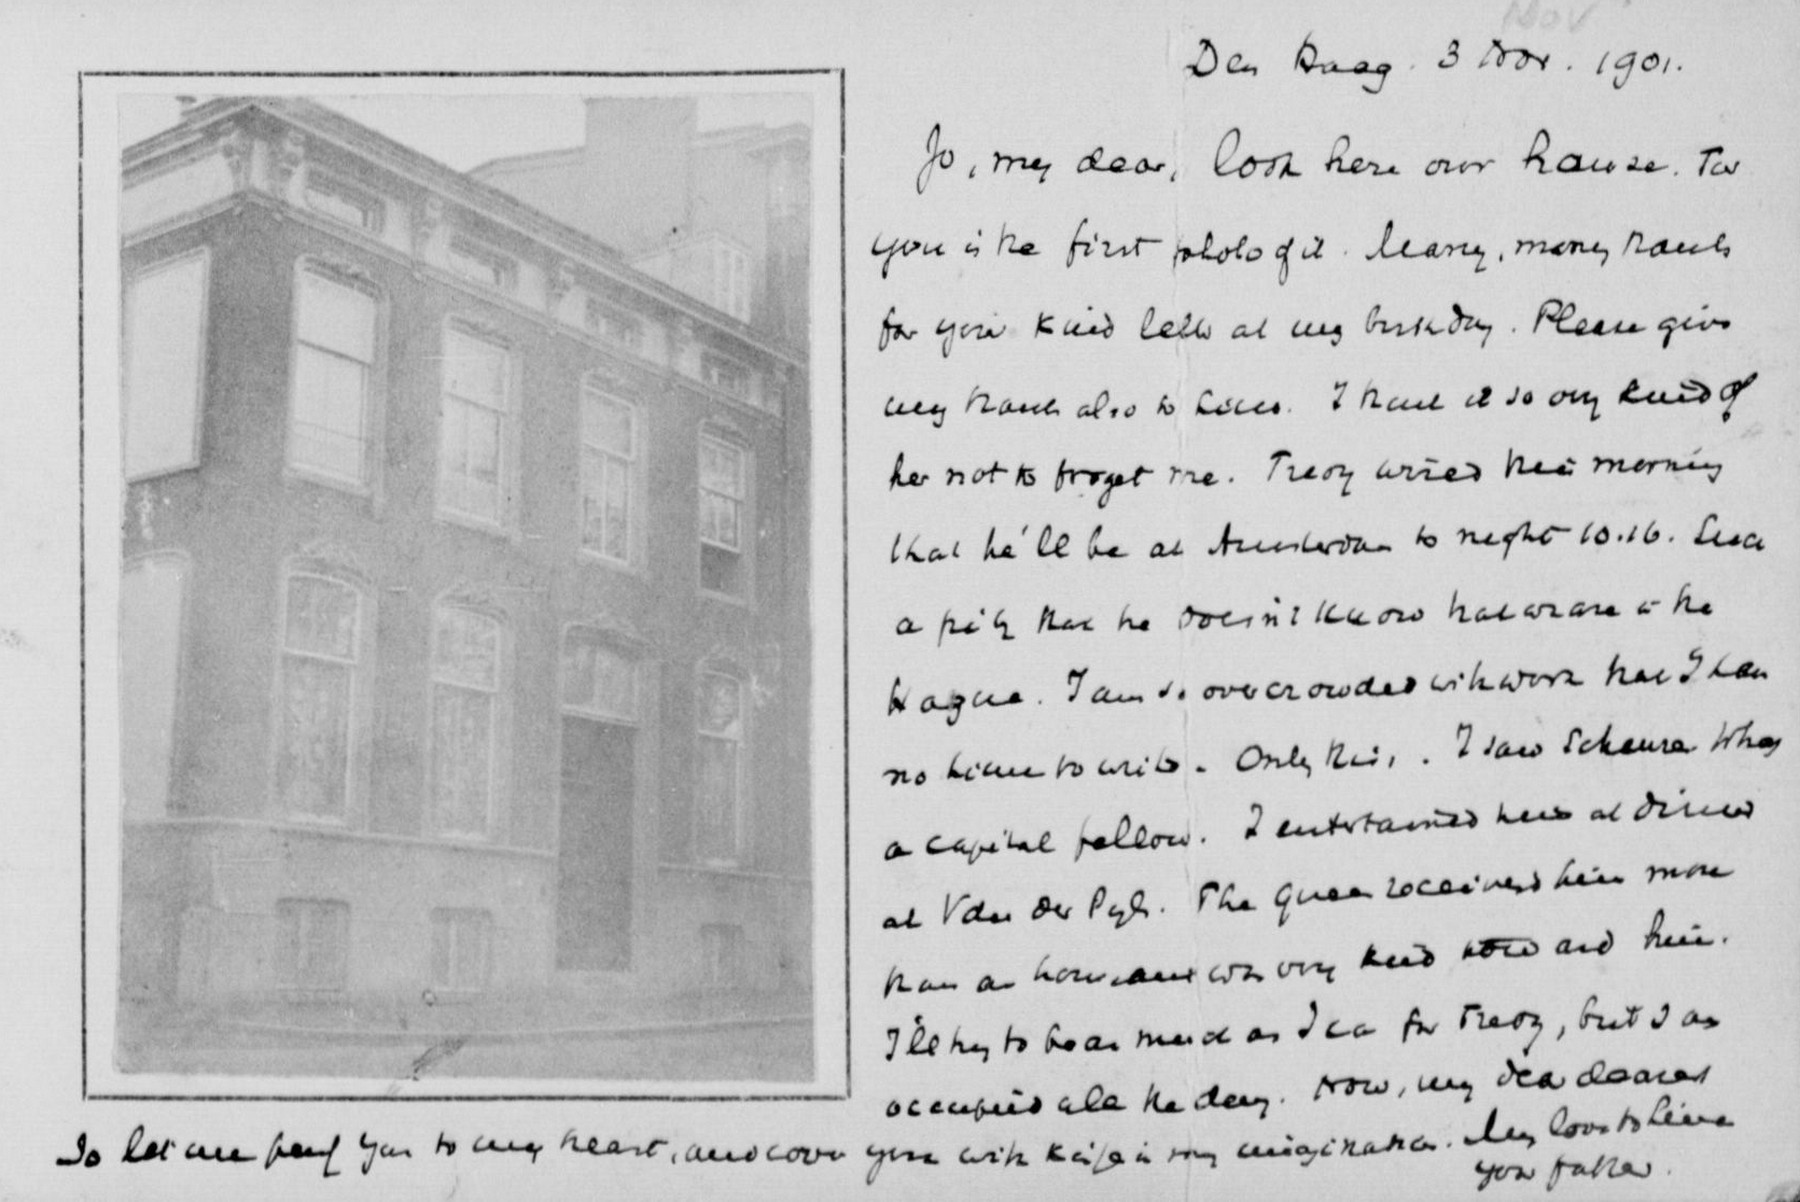 Nov
Den Haag. 3 Nov. 1901.
Jo, my dear, look here our house. For
you is the first photo of it. Many, many thanks
for your kind letter at my birthday. Please give
my thanks also to Lines. I thank it so very kind of
her not to froget me. Treoy wired this morning
that he'll be at Amsterdam to night 10.16. Such
a pity that he doesn't know that we are in the
Hague. I am so overcrowded with work that I have
no time to write. Only this. I saw Scheurer. What
a capital fellow. I entertained him at dinner
at Van der Pyl. The Queen received him more
than an hour, and was very kind and him.
I'll try to be as much as I can for Treoy, but I am
occupied all the day. Now, my dear dearest
Jo let me you to my heart, and cover you with in my imagination. My love to Line
your father.